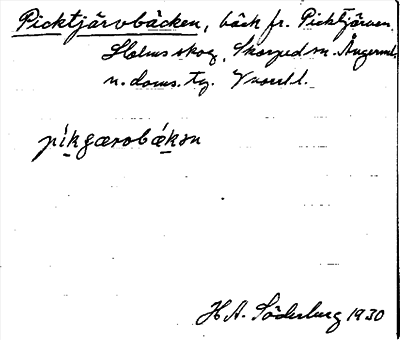 Picktjärvbäcken, bäck fr. Picktjärven.
Holmsskog, Skorped sn. Ångerml.
n. doms. tg.
píkgærobǽkən
H A. Söderberg 1930